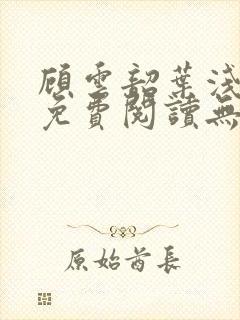 顧雲韶葉淺
免費閱讀無
原始酋長